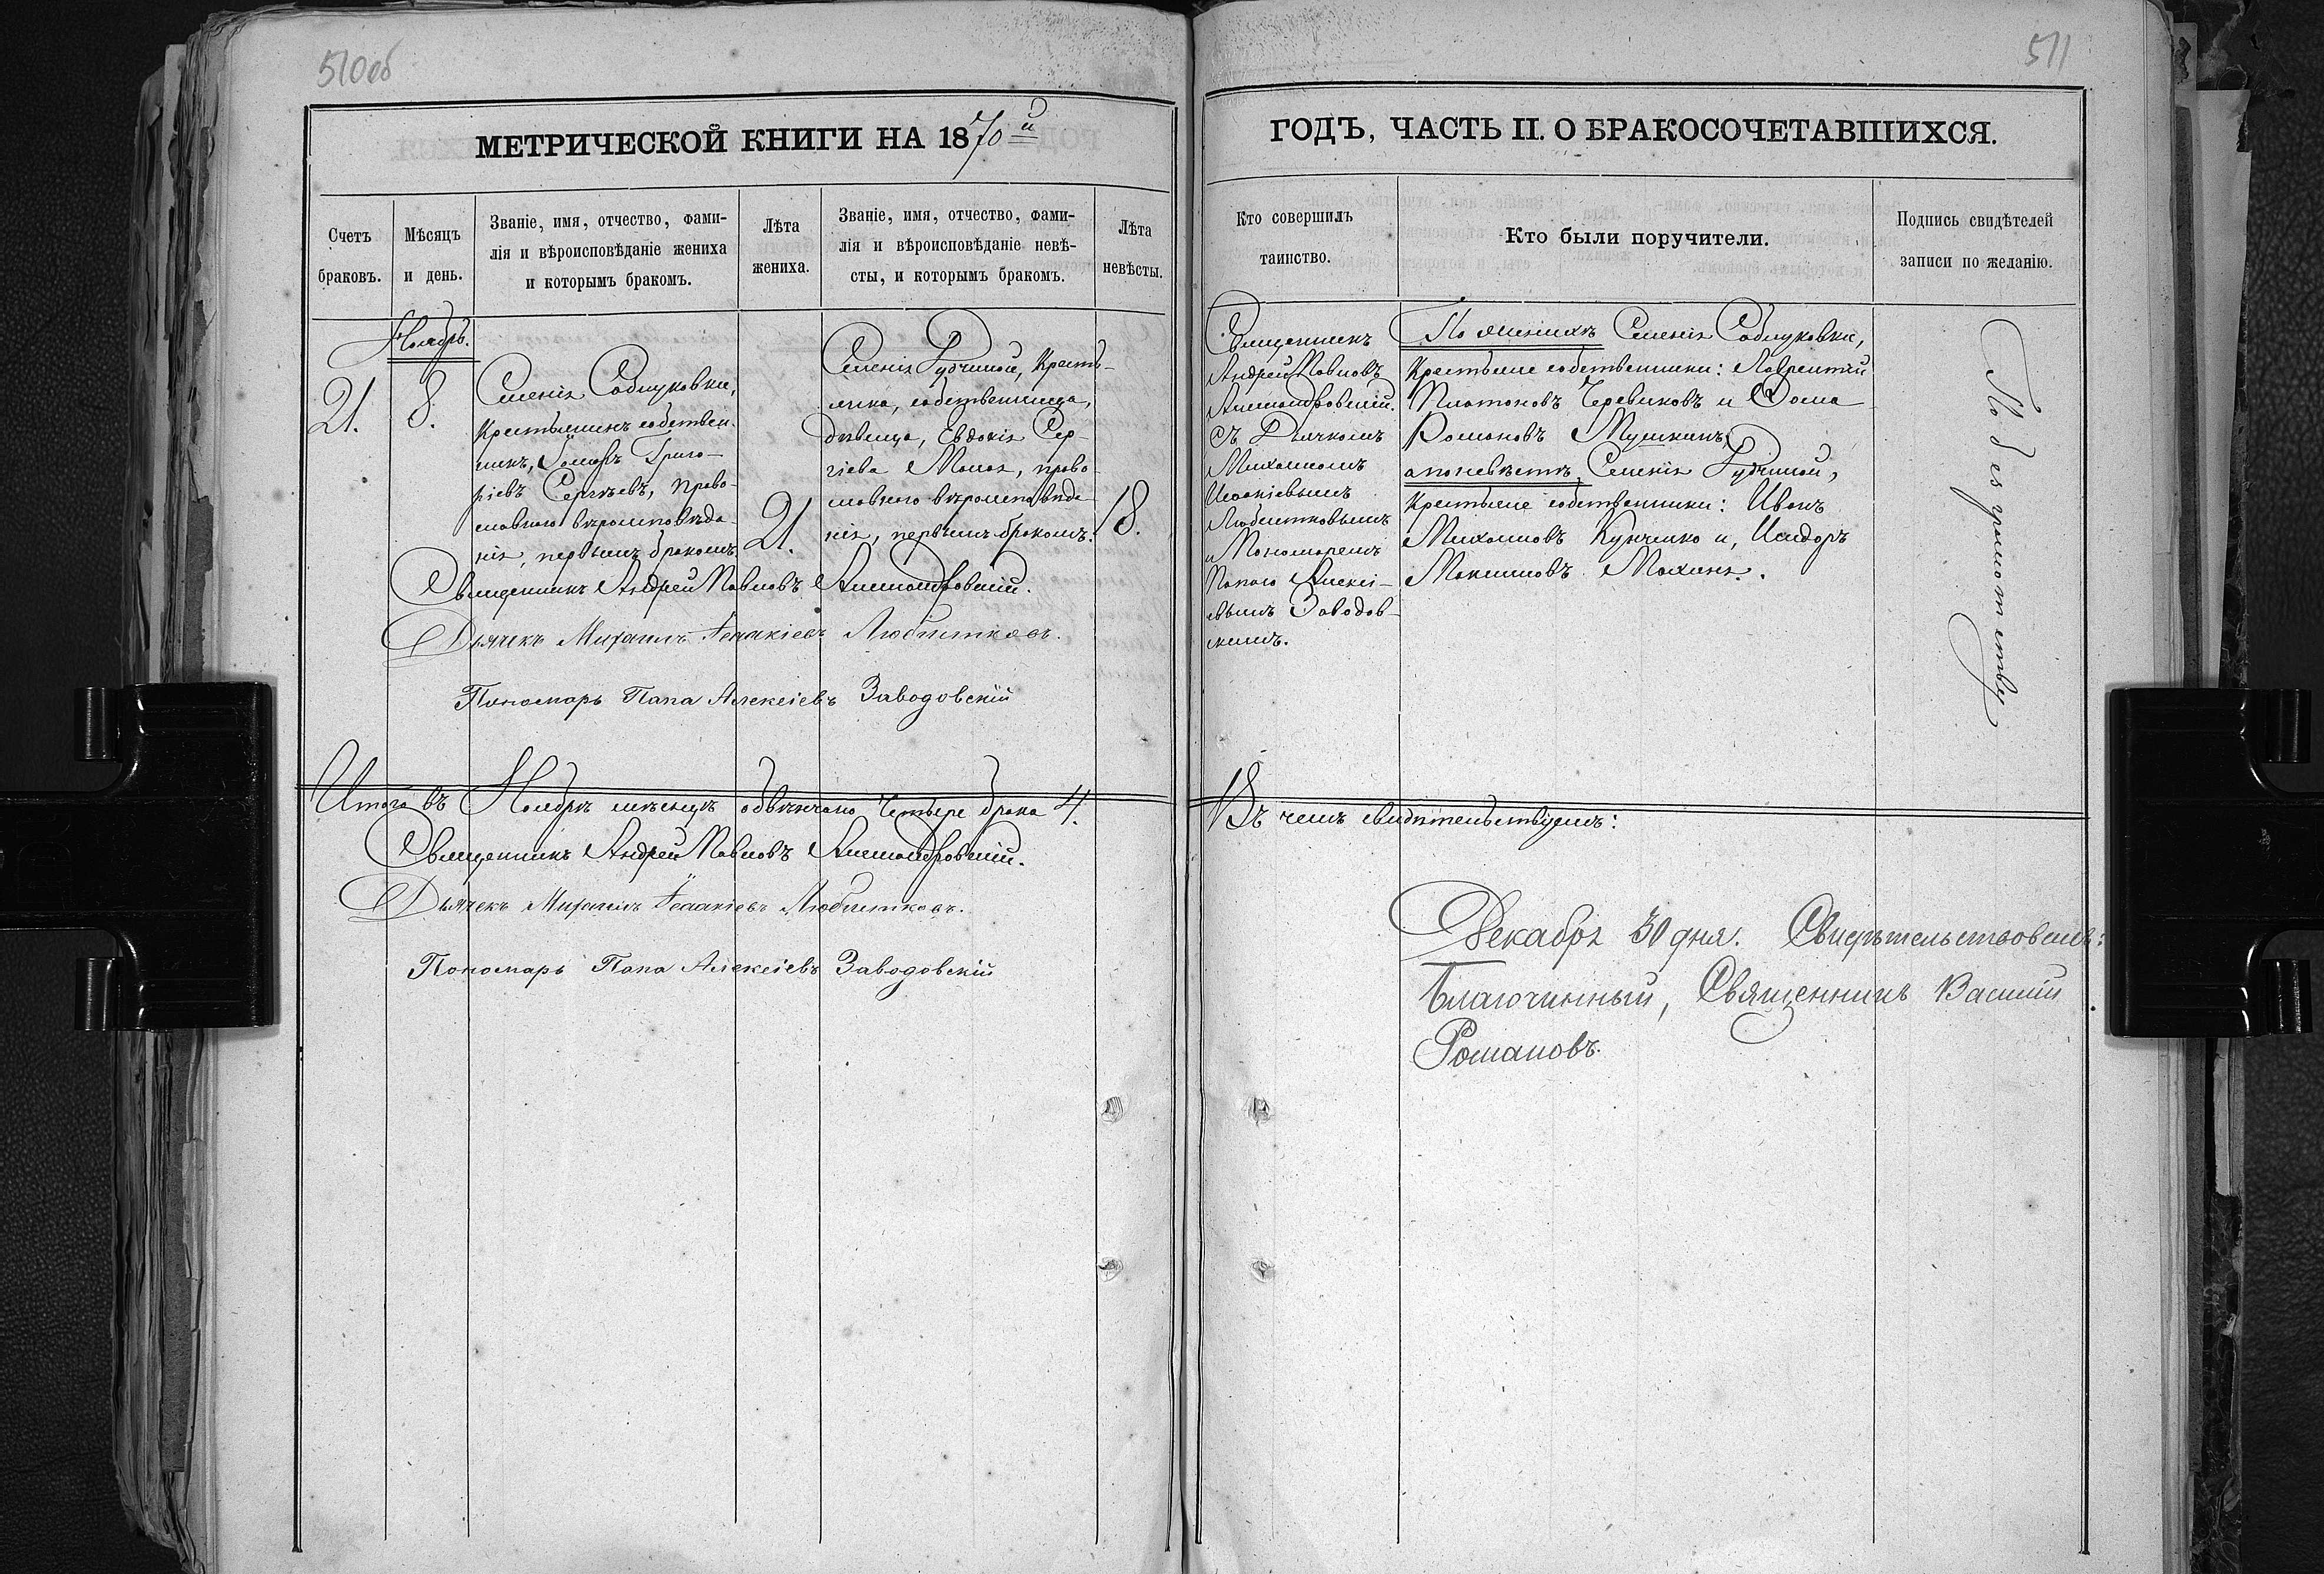 510об
МЕТРИЧЕСКОЙ КНИГИ НА 1870й
Счетъ браковъ.
Мѣсяцъ и день.
Званіе, имя, отчество, фами-
лія и вѣроисповѣданіе жениха
и которымъ бракомъ.
Лѣта жениха.
Званіе, имя, отчество, фами-
лія и вѣроисповѣданіе невѣ-
сты, и которымъ бракомъ.
Лѣта невѣсты.
Ноябрь.
21.
8.
Селенія Садлуковки,
Крестьянинъ собствен-
никъ, Григо-
ріевъ Сергѣевъ, право-
славнаго вѣроисповѣда-
нія, первымъ бракомъ.
21.
Селенія Гудчиной, Кресть-
янка, собственница,
дѣвица, Евдокія Сер-
гіева право-
славнаго вѣроисповѣда-
нія, первымъ бракомъ.
18.
Священникъ Андрей Павловъ Александровскій.
Дьячекъ Михаилъ Ісаакіевъ Любитковъ.
Пономарь Папа Алексіевъ Заводовскій
Итого въ Ноябрѣ мѣсяцѣ обвѣнчано Четыре брака 4.
Священникъ Андрей Павловъ Александровскій.
Дьячекъ Михаилъ Ісаакіевъ Любитковъ.
Пономарь Папа Алексіевъ Заводовскій
511
ГОДЪ, ЧАСТЬ II. О БРАКОСОЧЕТАВШИХСЯ.
Кто совершилъ
таинство.
Кто были поручители.
Подпись свидѣтелей
записи по желанію.
Священникъ
Андрей Павловъ
Александровскій.
съ Дьячкомъ
Михаиломъ
Исаакіевымъ
Любитковымъ
и Пономаремъ
Папою Алексі-
евымъ Заводов-
скимъ.
По женихѣ Селенія Садлуковки,
Крестьяне собственники: Лаврентій
Платоновъ Черевковъ и Фома
Романовъ Мушкинъ,
а по невѣстѣ, Селенія Гудчиной,
Крестьяне собственники: Иванъ
Михаиловъ Кунченко и, Исидоръ
Максимовъ Махина.
По безграмотству
Въ чемъ свидѣтельствуемъ:
Декабря 30 дня. Свидѣтельствовалъ:
Благочинный, Священникъ Василій
Романовъ.